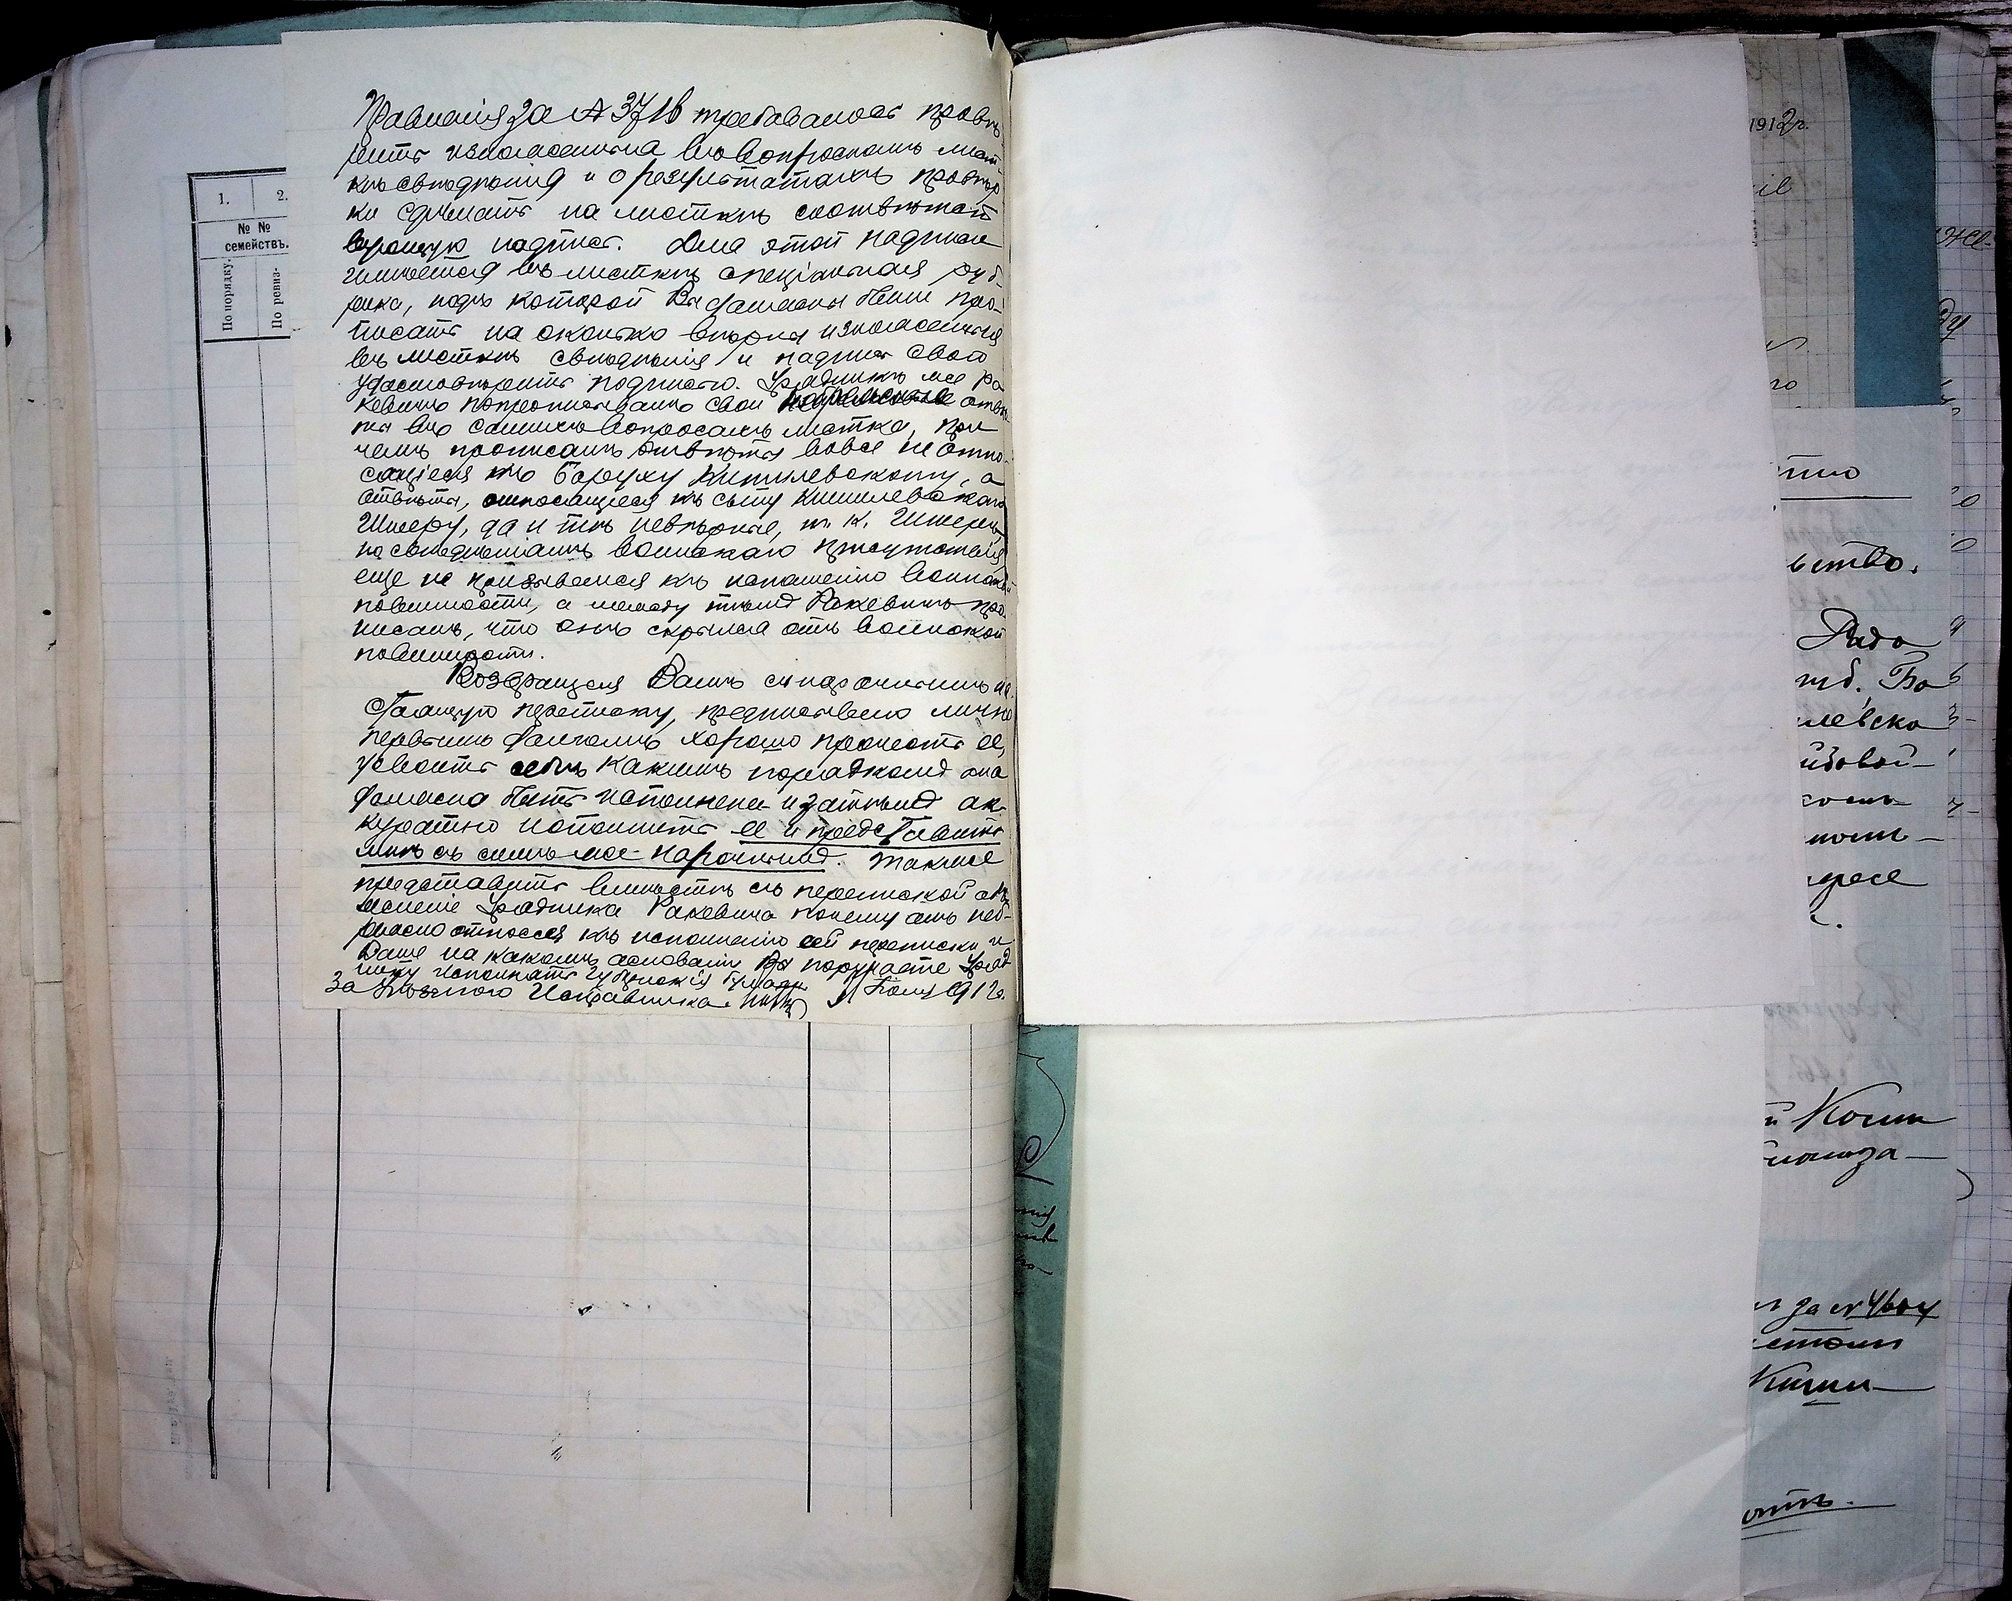 1. 2.
№ № семействъ.
По порядку.
По ревиз-
Правленія за № 3718 требовалось провѣ
рить изложенныя въ вопросномъ лист
кѣ свѣдѣнія и о результатахъ провѣр
ки сдѣлать на листкѣ соотвѣтст
вующую надпись. Для этой надписи
имѣется въ листкѣ спеціальная руб-
рика, подъ которой Вы должны были про-
писать на сколько вѣрны изложенныя
въ листкѣ свѣдѣнія и надпись свою
удостовѣрить подписью. Урядникъ же Ра
кевичъ попрописывалъ свои отвѣ
ты въ самихъ вопросахъ листка, при
чемъ прописалъ отвѣты вовсе не отно-
сящіеся къ Боруху Кишилевскому, а
отвѣты, относящіеся къ сыну Кишилевскаго
Шмеру, да и тѣ невѣрные, т. к. Шмеръ
по свѣдѣніямъ воинскаго присутствія
еще не призывался къ исполненію воинской
повинности, а между тѣмъ Ракевичъ про-
писалъ, что онъ скрылся отъ воинской
повинности.
Возвращая Вамъ съ нарочнымъ на
стоящую переписку, предписываю лично
первымъ долгомъ хорошо прочесть ее,
усвоить себѣ какимъ порядкомъ она
должна быть исполнена и затѣмъ ак-
куратно исполнить ее и представить
мнѣ съ симъ же нарочнымъ. Также
представить вмѣстѣ съ перепиской объ
ясненіе Урядника Ракевича почему онъ неб-
режно отнесся къ исполненію сей переписки и
Ваше на какомъ основаніи Вы поручаете Уряд
нику исполнять губернскія бумаги.
За Уѣзднаго Исправника 1912г.
1912г.
ьство.
Кошл
за №
Кишл